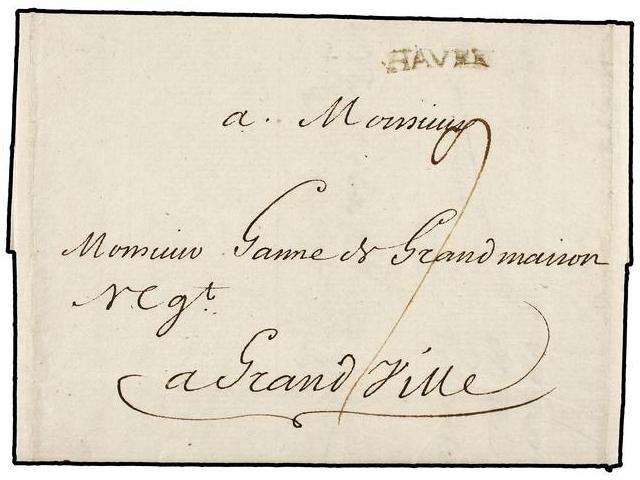 HAVRE
a. Monsieur
Monsieur Ganne de Grandmaison
Negt.
a Grand Ville